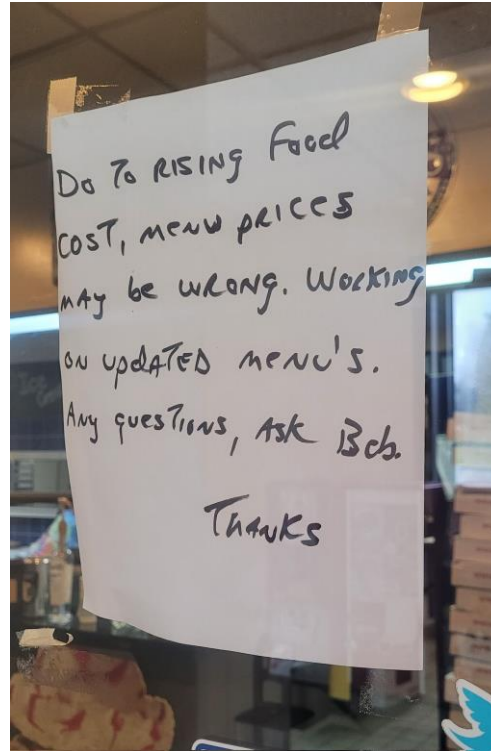 Do To RISING Food
COST, MENU PRICES
MAY be WRONG. WORKING
ON UPdATED MENU'S.
ANY QUESTIONS, ASK Bob.
THANKS